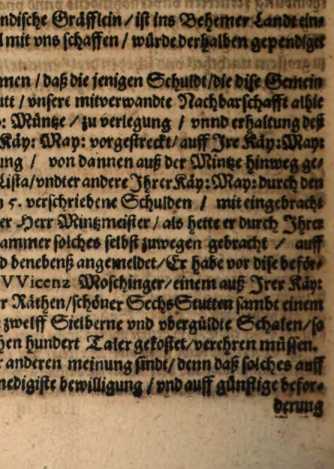 ndische Gräfflein / ist ins Behemer Landt eins
l mit vns schaffen / würde derhalben gependiget
men / daß die jenigen Schuldt / die dise Gemein
utt / vnsere mitverwandte Nachbarschafft alhie
: Müntze / zu verlegung / vnnd erhaltung deß
Käy: May: vorgestreckt / auff Ire Käy: May:
ung / von dannen auß der Mintze hinweg ge⸗
Lista / vndter andere Ihrer Käy: May: durch den
n 5. verschriebene Schulden / mit eingebracht
er Herr Mintzmeister / als hette er durch Ihrer
ammer solches selbst zuwegen gebracht / auff
d benebenß angemeldet / Er habe vor dise beför⸗
VVicenz Moschinger / einem auß Irer Käy:
r Räthen / schöner Sechs Stutten sambt einem
zwelff Sielberne vnd vbergüldte Schalen / so
hen hundert Taler gekostet / verehren müssen.
r anderen meinung sindt / denn daß solches auff
nedigiste bewilligung / vnd auff günstige befor⸗
derung